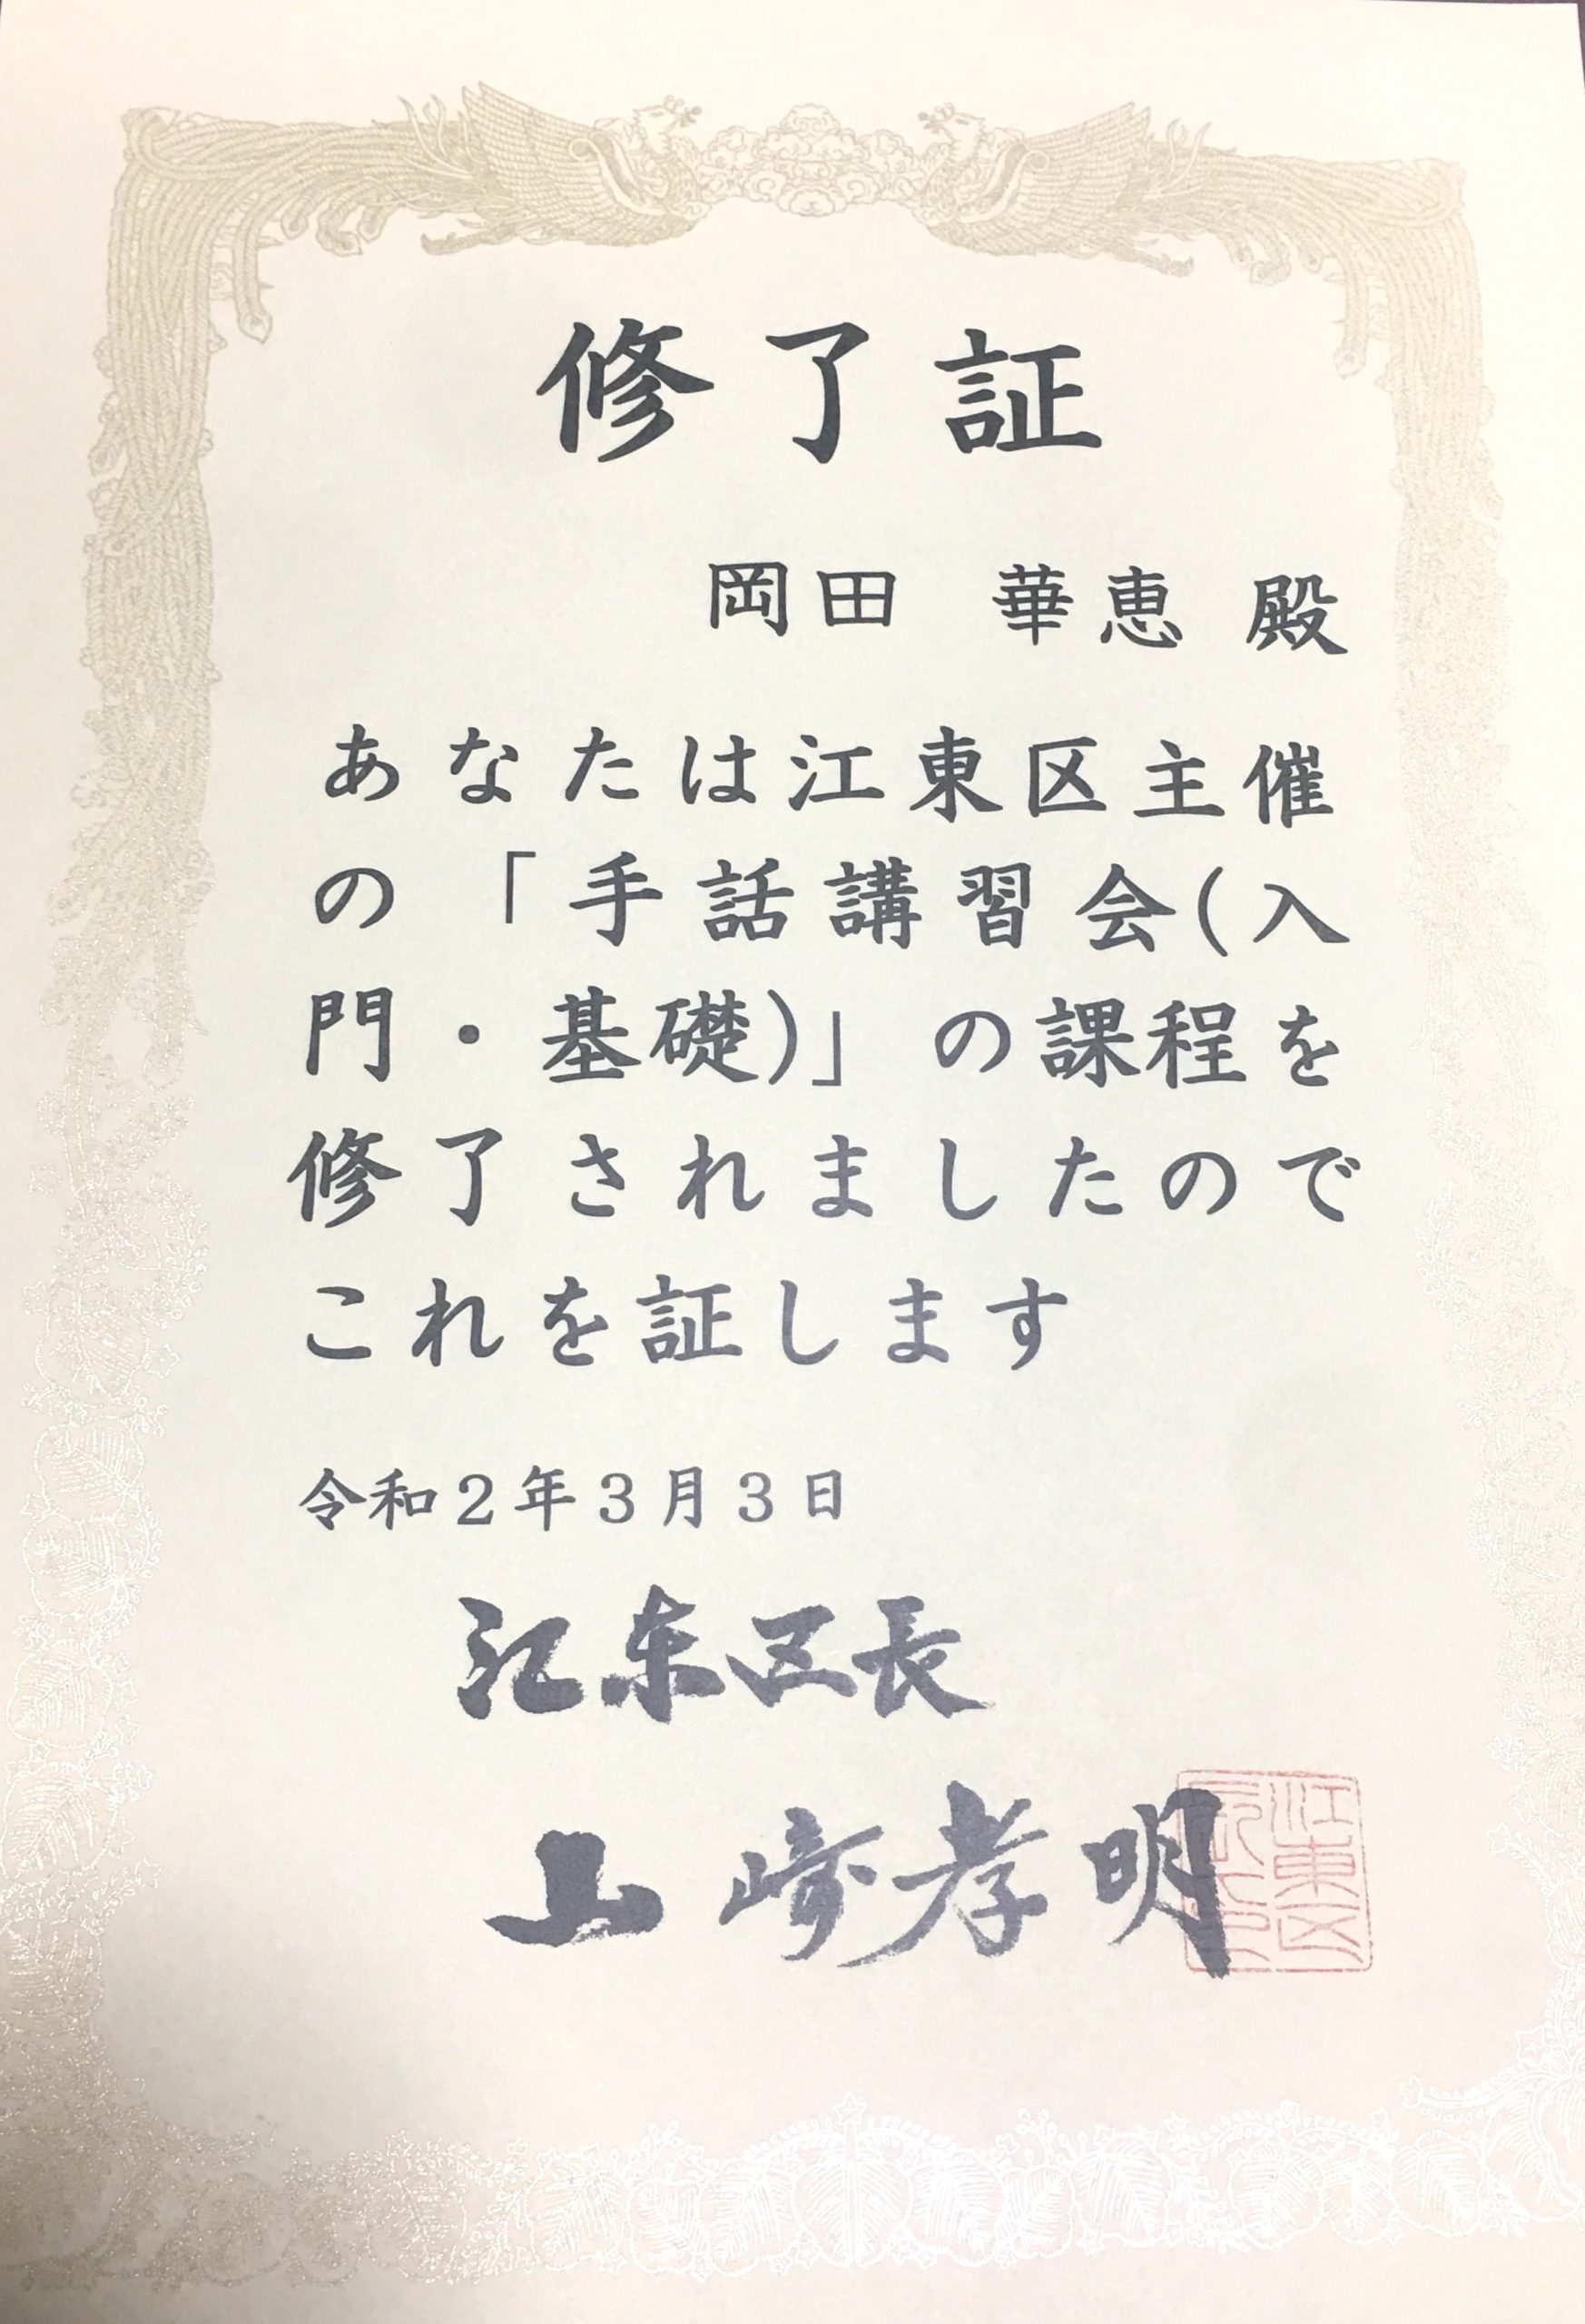 修了証
岡田 華恵 殿
あなたは江東区主催
の「手話講習会(入
門・基礎)」の課程を
修了されましたので
これを証します
令和2年3月3日
江東区長
山﨑孝明
江東区
長之印